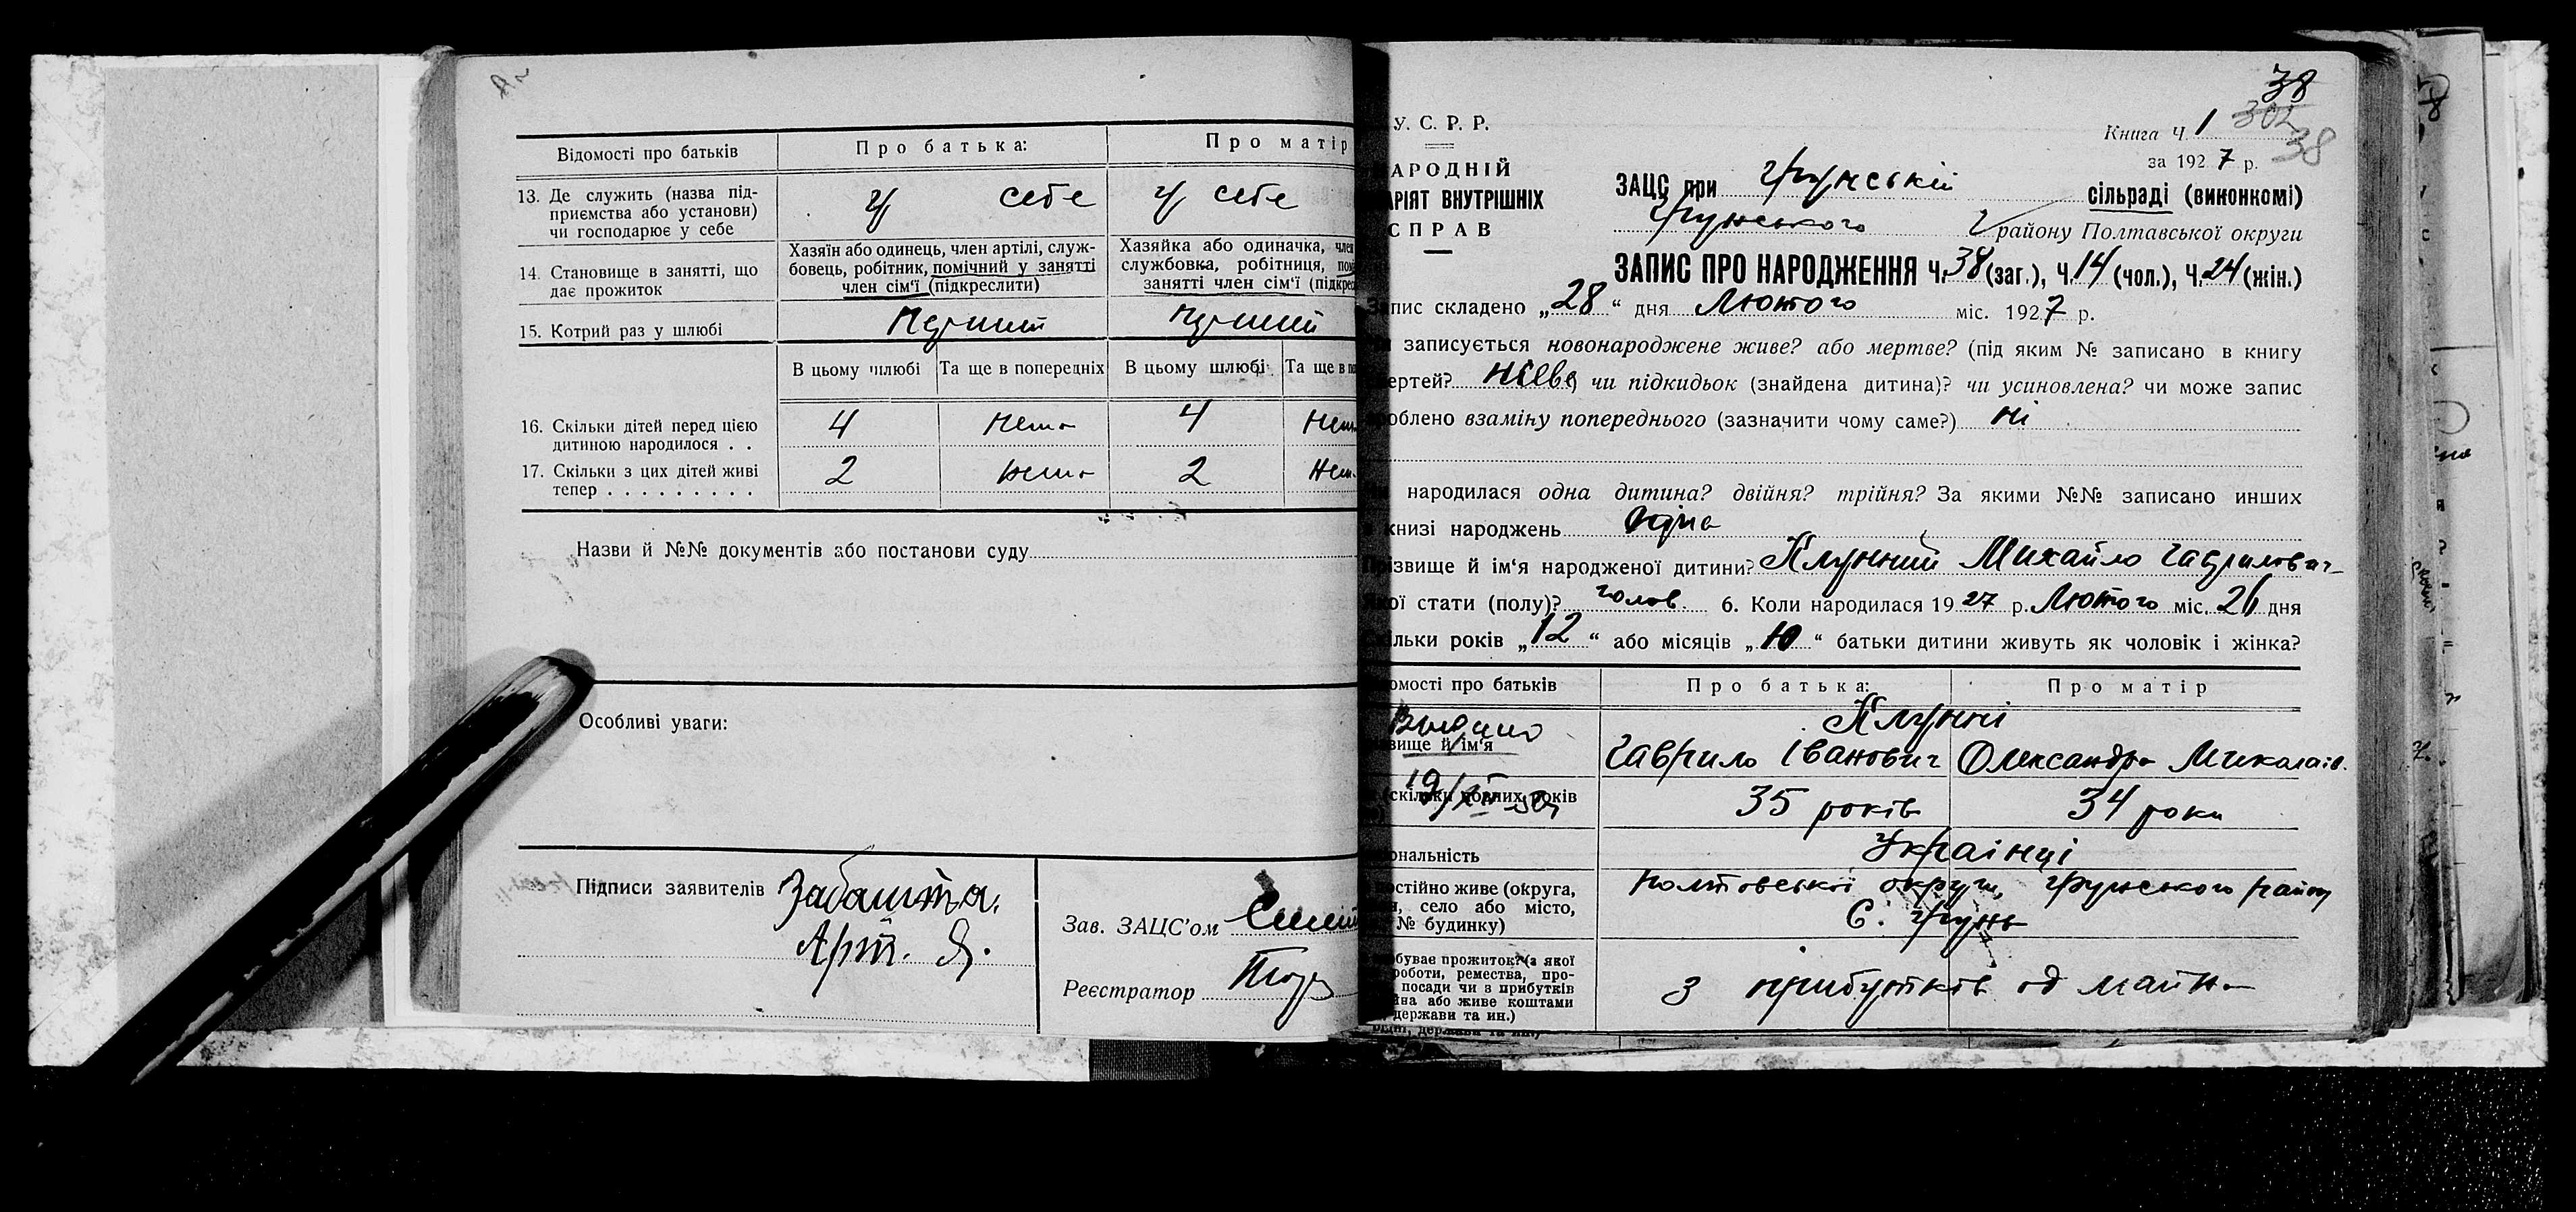 Відомості про батьків
Про батька:
Про матір
13. Де служить (назва під-
приємства або установи)
чи господарює у себе
У себе
У себе
14. Становище в занятті, що
дає прожиток
Хазяїн або одинець, член артілі, служ-
бовець, робітник, помічний у занятті
член сім'ї (підкреслити)
Хазяйка або одиначка, член
службовка, робітниця, пом
занятті член сім'ї (підкрес
15. Котрий раз у шлюбі
Перший
Перший
В цьому шлюбі
Та ще в попередніх
В цьому шлюбі
Та ще в по
16. Скільки дітей перед цією
дитиною народилося . .
4
Нема
4
Нема
17. Скільки з цих дітей живі
тепер . . . . . . . . .
2
Нема
2
Нем
Назви й №№ документів або постанови суду
Особливі уваги:
Підписи заявителів Забашта.
Арт. Я.
Зав. ЗАЦС'ом
Реєстратор
38
302
38
У. С. Р. Р.
Книга Ч. 1
за 1927 р.
АРОДНІЙ
АРІЯТ ВНУТРІШНІХ
СПРАВ
ЗАЦС при Грунській сільраді (виконкомі)
Грунського району Полтавської округи
ЗАПИС ПРО НАРОДЖЕННЯ Ч. 38 (заг.), Ч. 14 (чол.), Ч. 24 (жін.)
пис складено „28“ дня Лютого міс. 1927 р.
записується новонароджене живе? або мертве? (під яким № записано в книгу
ертей? живе) чи підкидьок (знайдена дитина)? чи усиновлена? чи може запис
облено взаміну попереднього (зазначити чому саме?) ні
народилася одна дитина? двійня? трійня? За якими №№ записано инших
книзі народжень одна
ізвище й ім'я народженої дитини? Клунний Михайло Гаврилович
ої стати (полу)? чолов. 6. Коли народилася 1927 р. Лютого міс. 26 дня
ільки років „12“ або місяців „10“ батьки дитини живуть як чоловік і жінка?
омості про батьків
Про батька:
Про матір
вище й ім'я
Клунні
Гаврило Іванович
Олександра Миколаїв.
скільки повних років
35 років
34 роки
ональність
Українці
остійно живе (округа,
село або місто,
№ будинку)
Полтовської округи, Грунського району
С. Грунь
буває прожиток? (з якої
роботи, ремества, про-
посади чи з прибутків
на або живе коштами
держави та ин.)
З прибутків од майна